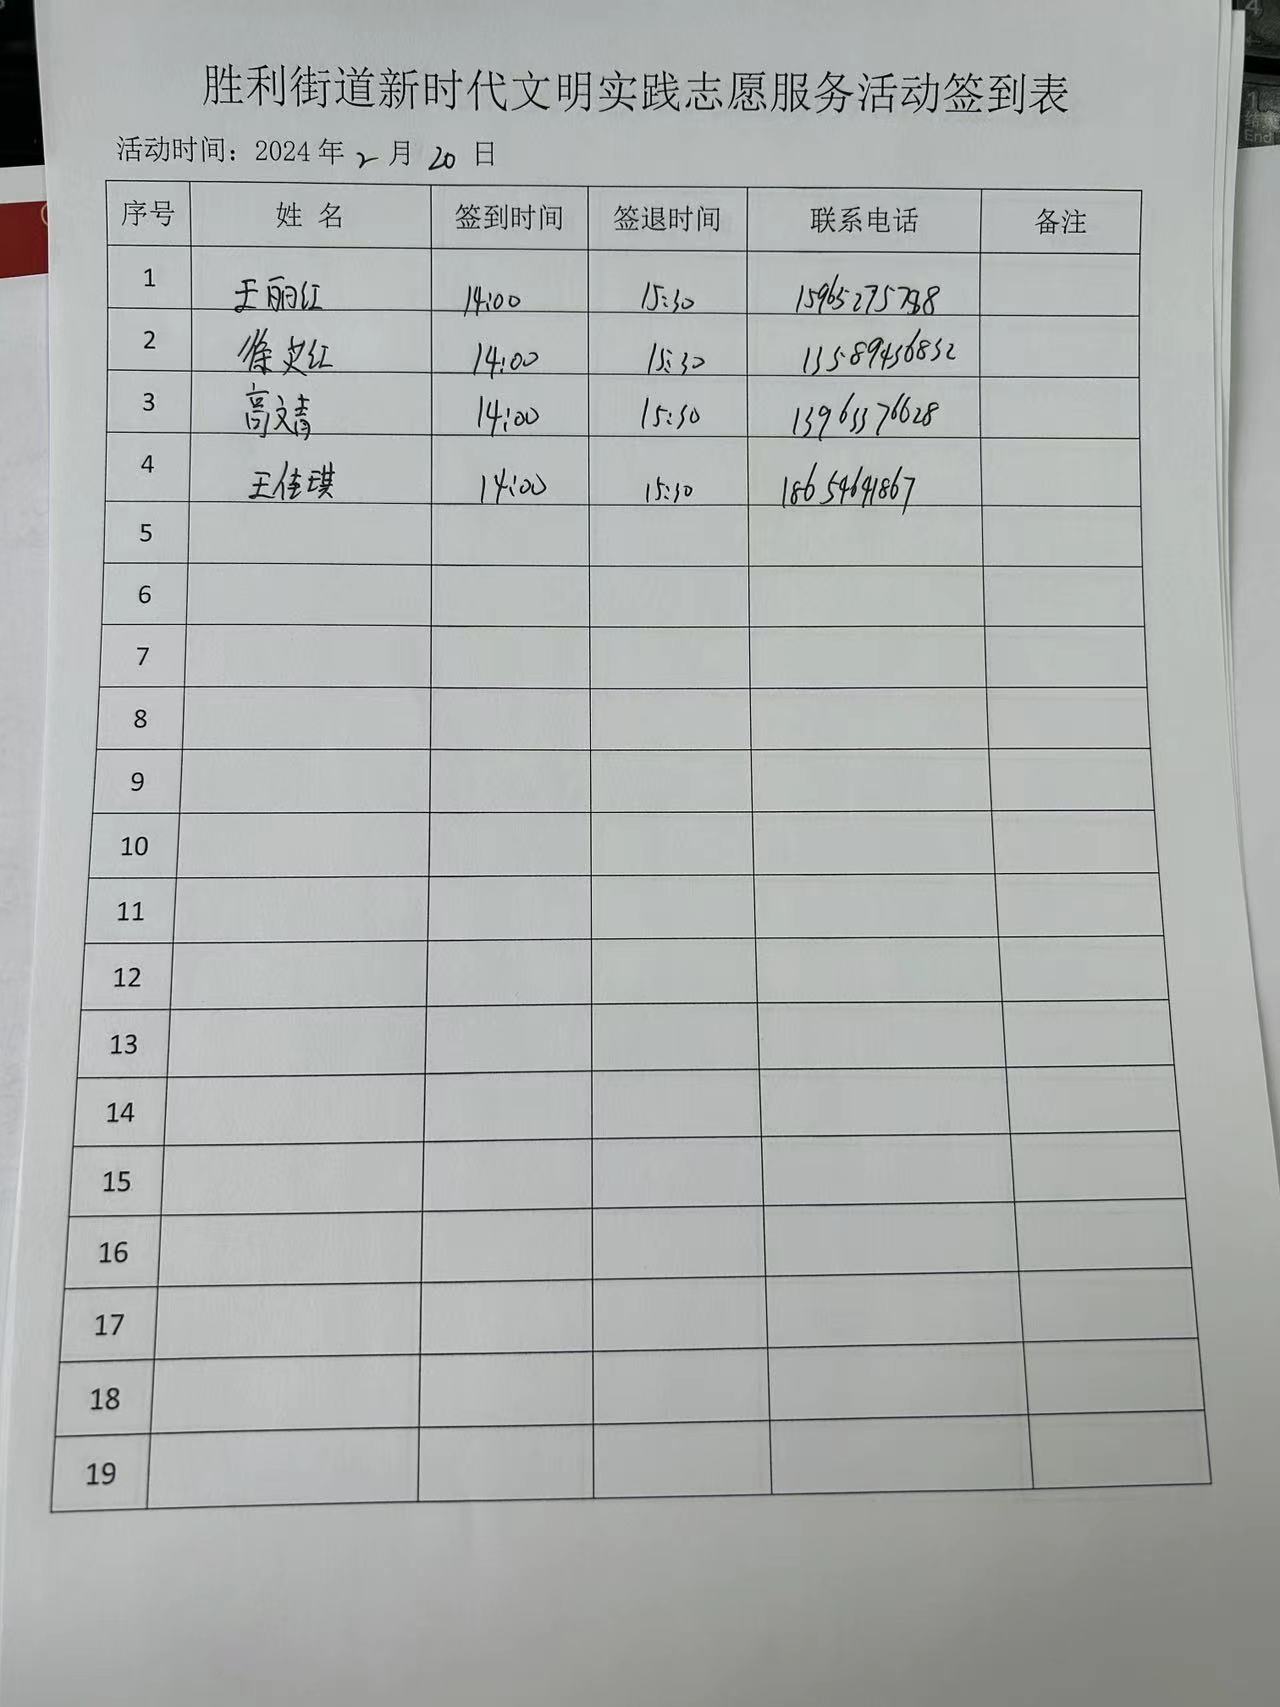 胜利街道新时代文明实践志愿服务活动签到表
活动时间：2024 年 2 月 20 日
序号 姓 名 签到时间 签退时间 联系电话 备注
1 王丽红 14:00 15:30
2 徐史红 14:00 15:30 13589456832
3 高文青 14:00 15:30 13963376628
4 王佳琪 14:00 15:30 18654641867
5
6
7
8
9
10
11
12
13
14
15
16
17
18
19